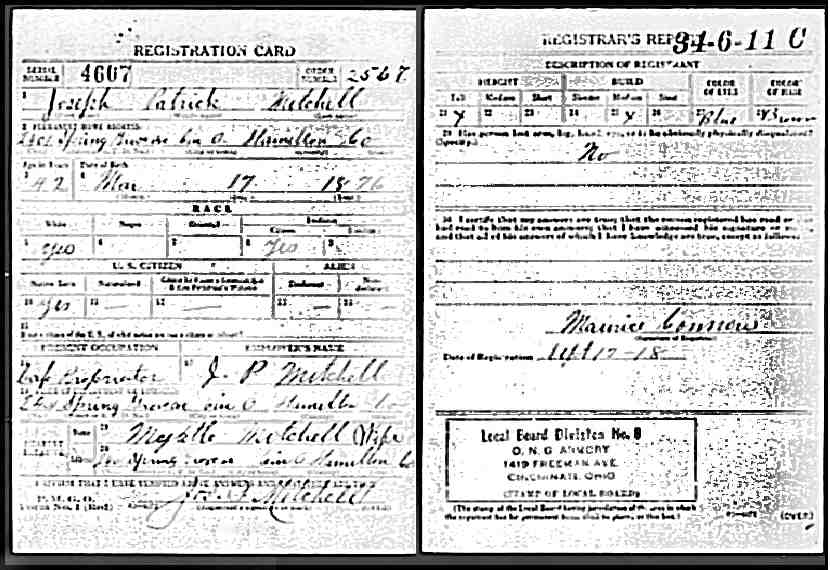 REGISTRATION CARD
SERIAL NUMBER 4607 ORDER NUMBER 2567
1 Joseph Patrick Mitchell
2 PERMANENT HOME ADDRESS:
Spring Grove Cin O Hamilton Co
Age in Years Date of Birth
3 42 4 Mar 17 1876
RACE
White Negro Oriental Indian
Citizen
5 Yes 6 7 8 Yes 9
U. S. CITIZEN ALIEN
Native Born Naturalized Declarant Non-declarant
10 Yes 11 — 12 — 13 — 14 —
15
PRESENT OCCUPATION EMPLOYER'S NAME
Proprietor 17 J. P. Mitchell
Spring Grove Cin O Hamilton Co
NEAREST RELATIVE Name 19 Myrtle Mitchell (Wife)
20 Spring Grove Cin O Hamilton Co
I AFFIRM THAT I HAVE VERIFIED ABOVE ANSWERS AND THAT THEY ARE TRUE
P. M. G. O.
Form No. 1 (Red) Jos. P. Mitchell
REGISTRAR'S REPORT 34-6-11 C
DESCRIPTION OF REGISTRANT
HEIGHT BUILD COLOR OF EYES COLOR OF HAIR
Tall Medium Short Slender Medium Stout
21 X 22 23 24 25 X 26 27 Blue 28 Brown
29 Has person lost arm, leg, hand, eye, or is he obviously physically disqualified?
(Specify.) No
30 I certify that my answers are true; that the person registered has read or has
had read to him his own answers; that I have witnessed his signature or
and that all of his answers of which I have knowledge are true, except as follows:
Maurice Connors
(Signature of Registrar)
Date of Registration Sept 12-18
Local Board Division No. 8
O. N. G. ARMORY
1419 FREEMAN AVE.
CINCINNATI, OHIO
(STAMP OF LOCAL BOARD)
(The stamp of the Local Board having jurisdiction of the area in which
the registrant has his permanent home shall be placed in this box.)
(OVER)